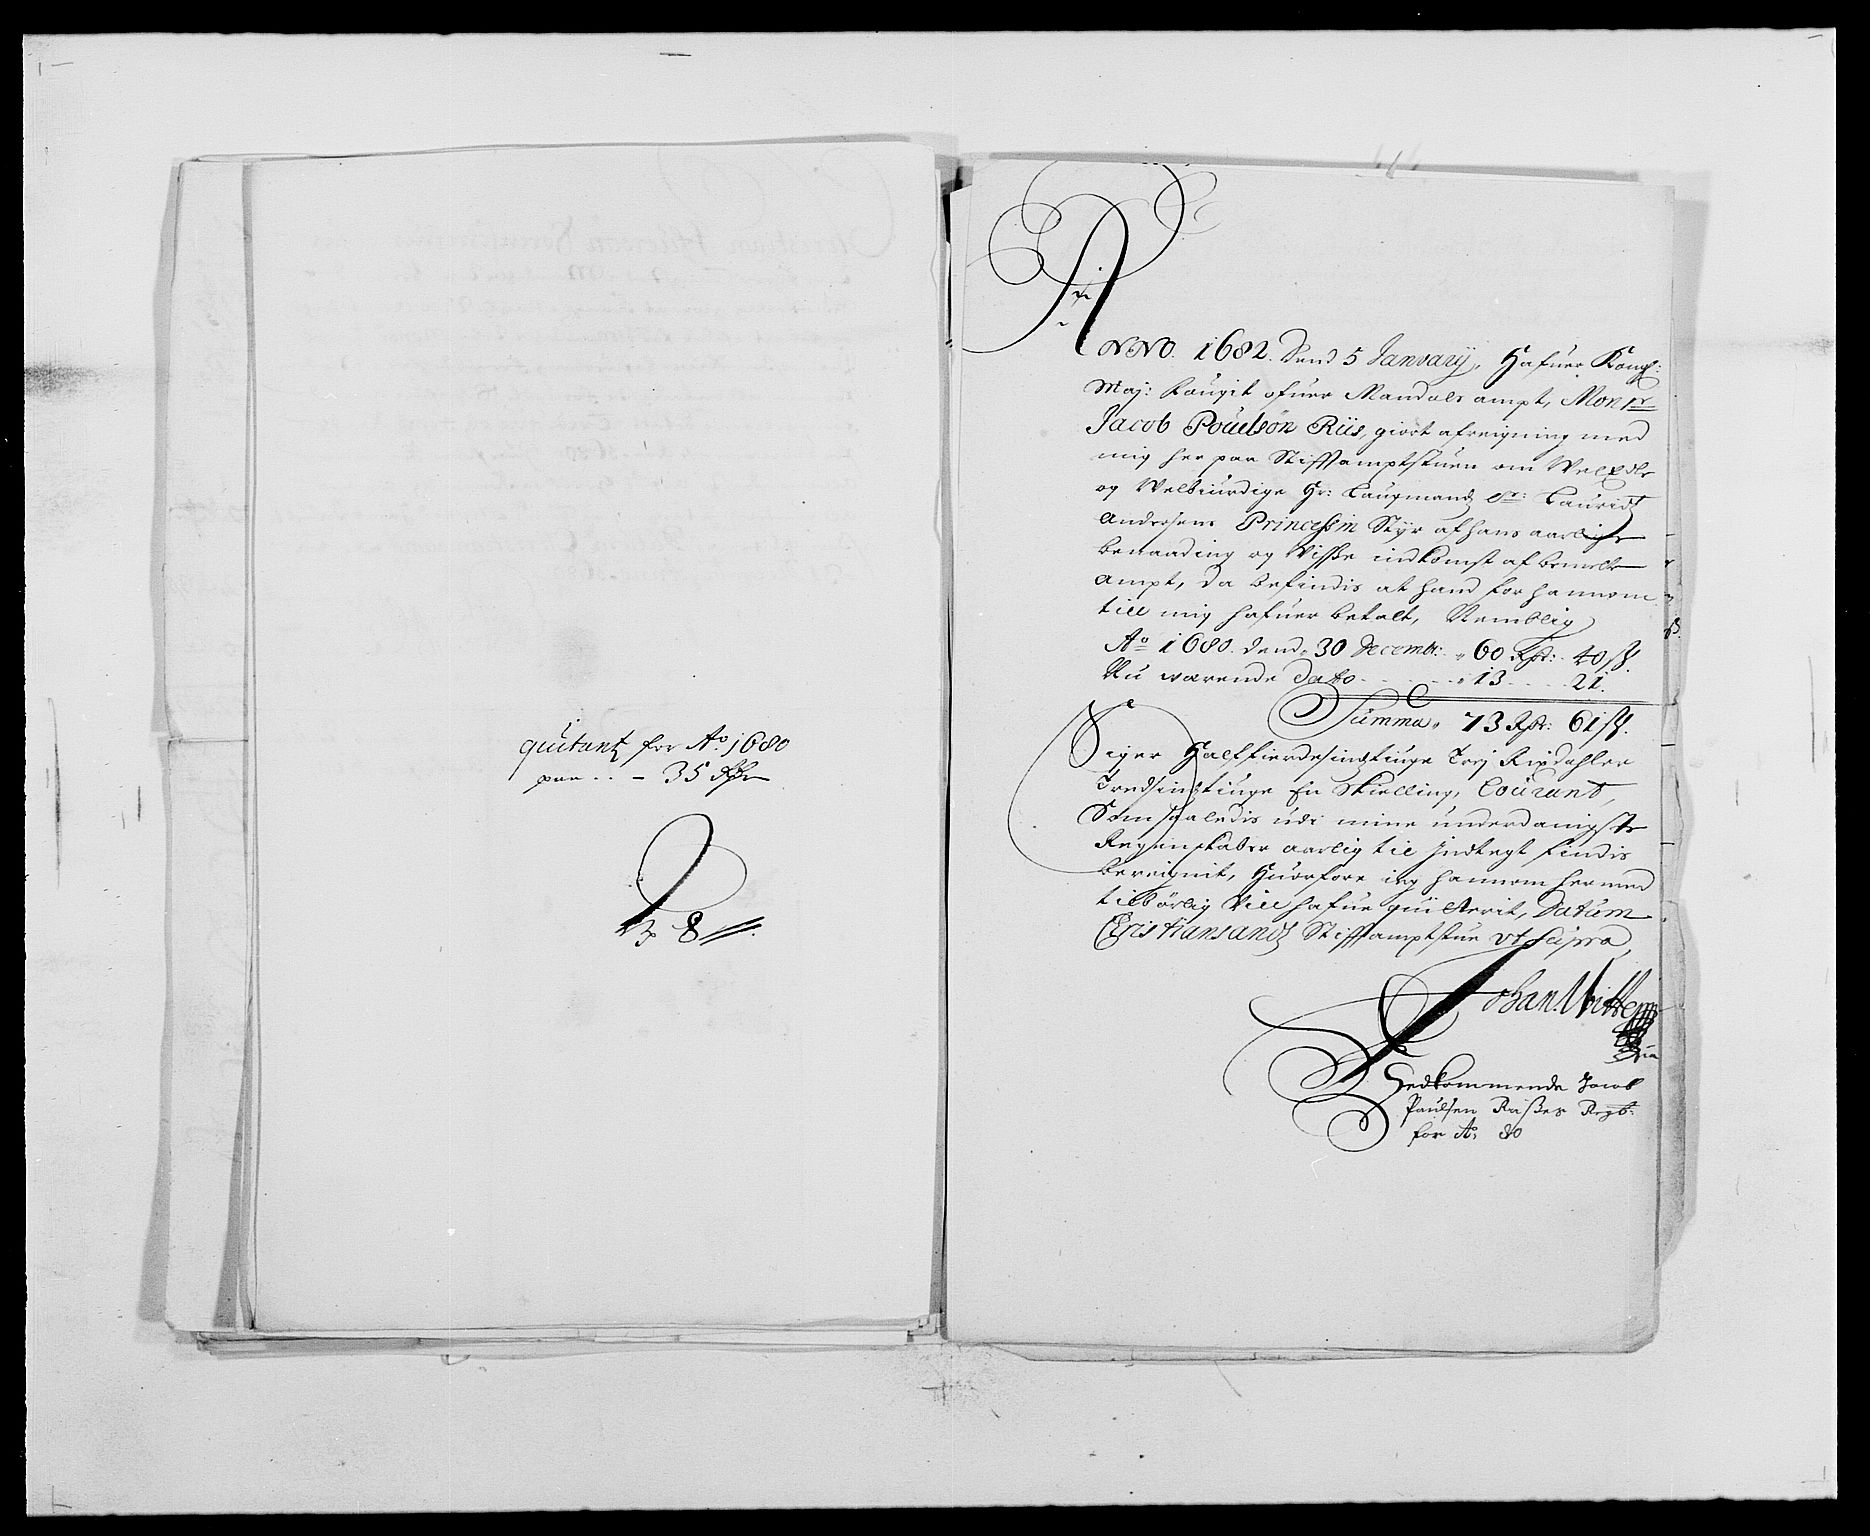 quitantz for Ao. 1680
paa .. - 35 Rdr
8
Anno 1682. Dend 5 January, Hafuer Kongl:
Maj: Fougit ofuer Mandals ampt, Monsr
Jacob Pouelsøn Riis, giort afreigning med
mig her paa Stiftamptstuen om Welædle
og Welbiurdige Hr: Laugmand Sr: Lauridtz
Andersens Princessin Styr af hans aarlige
benaading og Visse indkomst af bemelte
ampt, da befindis at hand for hannem
till mig hafuer betalt, Nemblig
Ao 1680. dend. 30 Decembr: 60 Rdr: 40 s.
Nu warende Dato - - - 13 - - 21.
Summa. 73 Rdr: 61 s.
Siger Halffierdesindstiuge Trej Rixdahler
Tredsindstiuge En Skielling, Courant,
Som saaledis udi mine underdanigste
Regenskaber aarlig til Indtegt findis
bereignit, Huorfore ieg hannem hermed
tilbørlig Vill hafue quitterit, Datum
Christiansands Stiftamptstue ut Supra
Johan. Witte
Vedkommende Jacob
Paulsen Rüsses Regb:
for Ao: 80